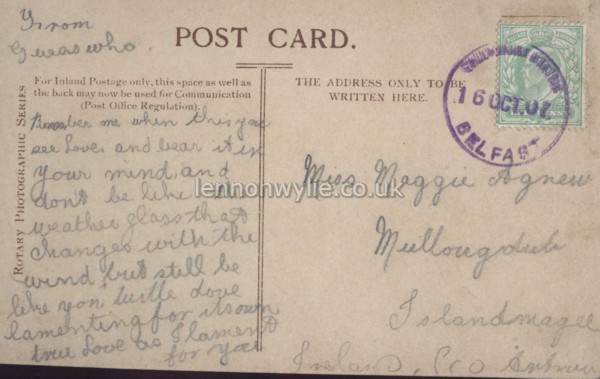 From
Guess who.
POST CARD.
For Inland Postage only, this space as well as
the back may now be used for Communication
(Post Office Regulation).
THE ADDRESS ONLY TO BE
WRITTEN HERE.
ROTARY PHOTOGRAPHIC SERIES
16 OCT. 07
BELFAST
Remember me when this you
see Love, and bear it in
your mind, and
don't be like the
weather glass that
changes with the
wind but still be
like yon turtle dove
lamenting for its own
true Love as I lament
for you
Miss Maggie Agnew
Mullougdub
Islandmagee
Ireland, Co Antrim
lennonwylie.co.uk